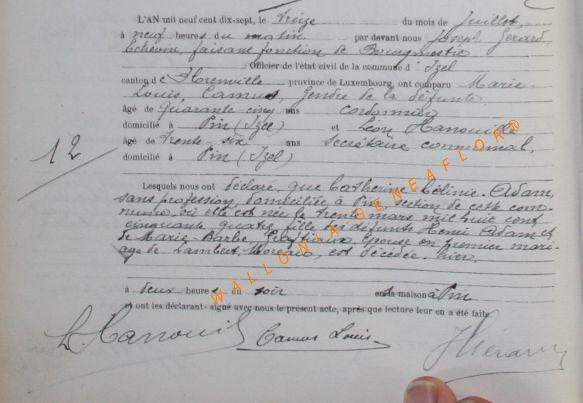 L'AN mil neuf cent dix-sept, le treize du mois de Juillet,
à neuf heures du matin par devant nous Joseph Gerard
Echevin, faisant fonction de Bourgmestre
Officier de l'état civil de la commune d'Izel
canton de Florenville province de Luxembourg, ont comparu Marie
Louis, Camus, gendre de la défunte
âgé de quarante cinq ans cordonnier
domicilié à Pin (Izel) et Léon Hanouille
âgé de trente-six ans secrétaire communal,
domicilié à Pin (Izel)
12
Lesquels nous ont déclaré, que Catherine Célinie Adam,
sans profession, domiciliée à Pin section de cette com-
mune, où elle est née le trente mars mil huit cent
cinquante quatre, fille des défunts Henri Adam et
de Marie Barbe, épouse en premier mari-
age de Lambert Moreaux, est décédée hier
à deux heures du soir en sa maison à Pin
et ont les déclarants signé avec nous le présent acte, après que lecture leur en a été faite.
L Hanouille Camus Louis JGerard
WALLONIA-GENEAFLOR®